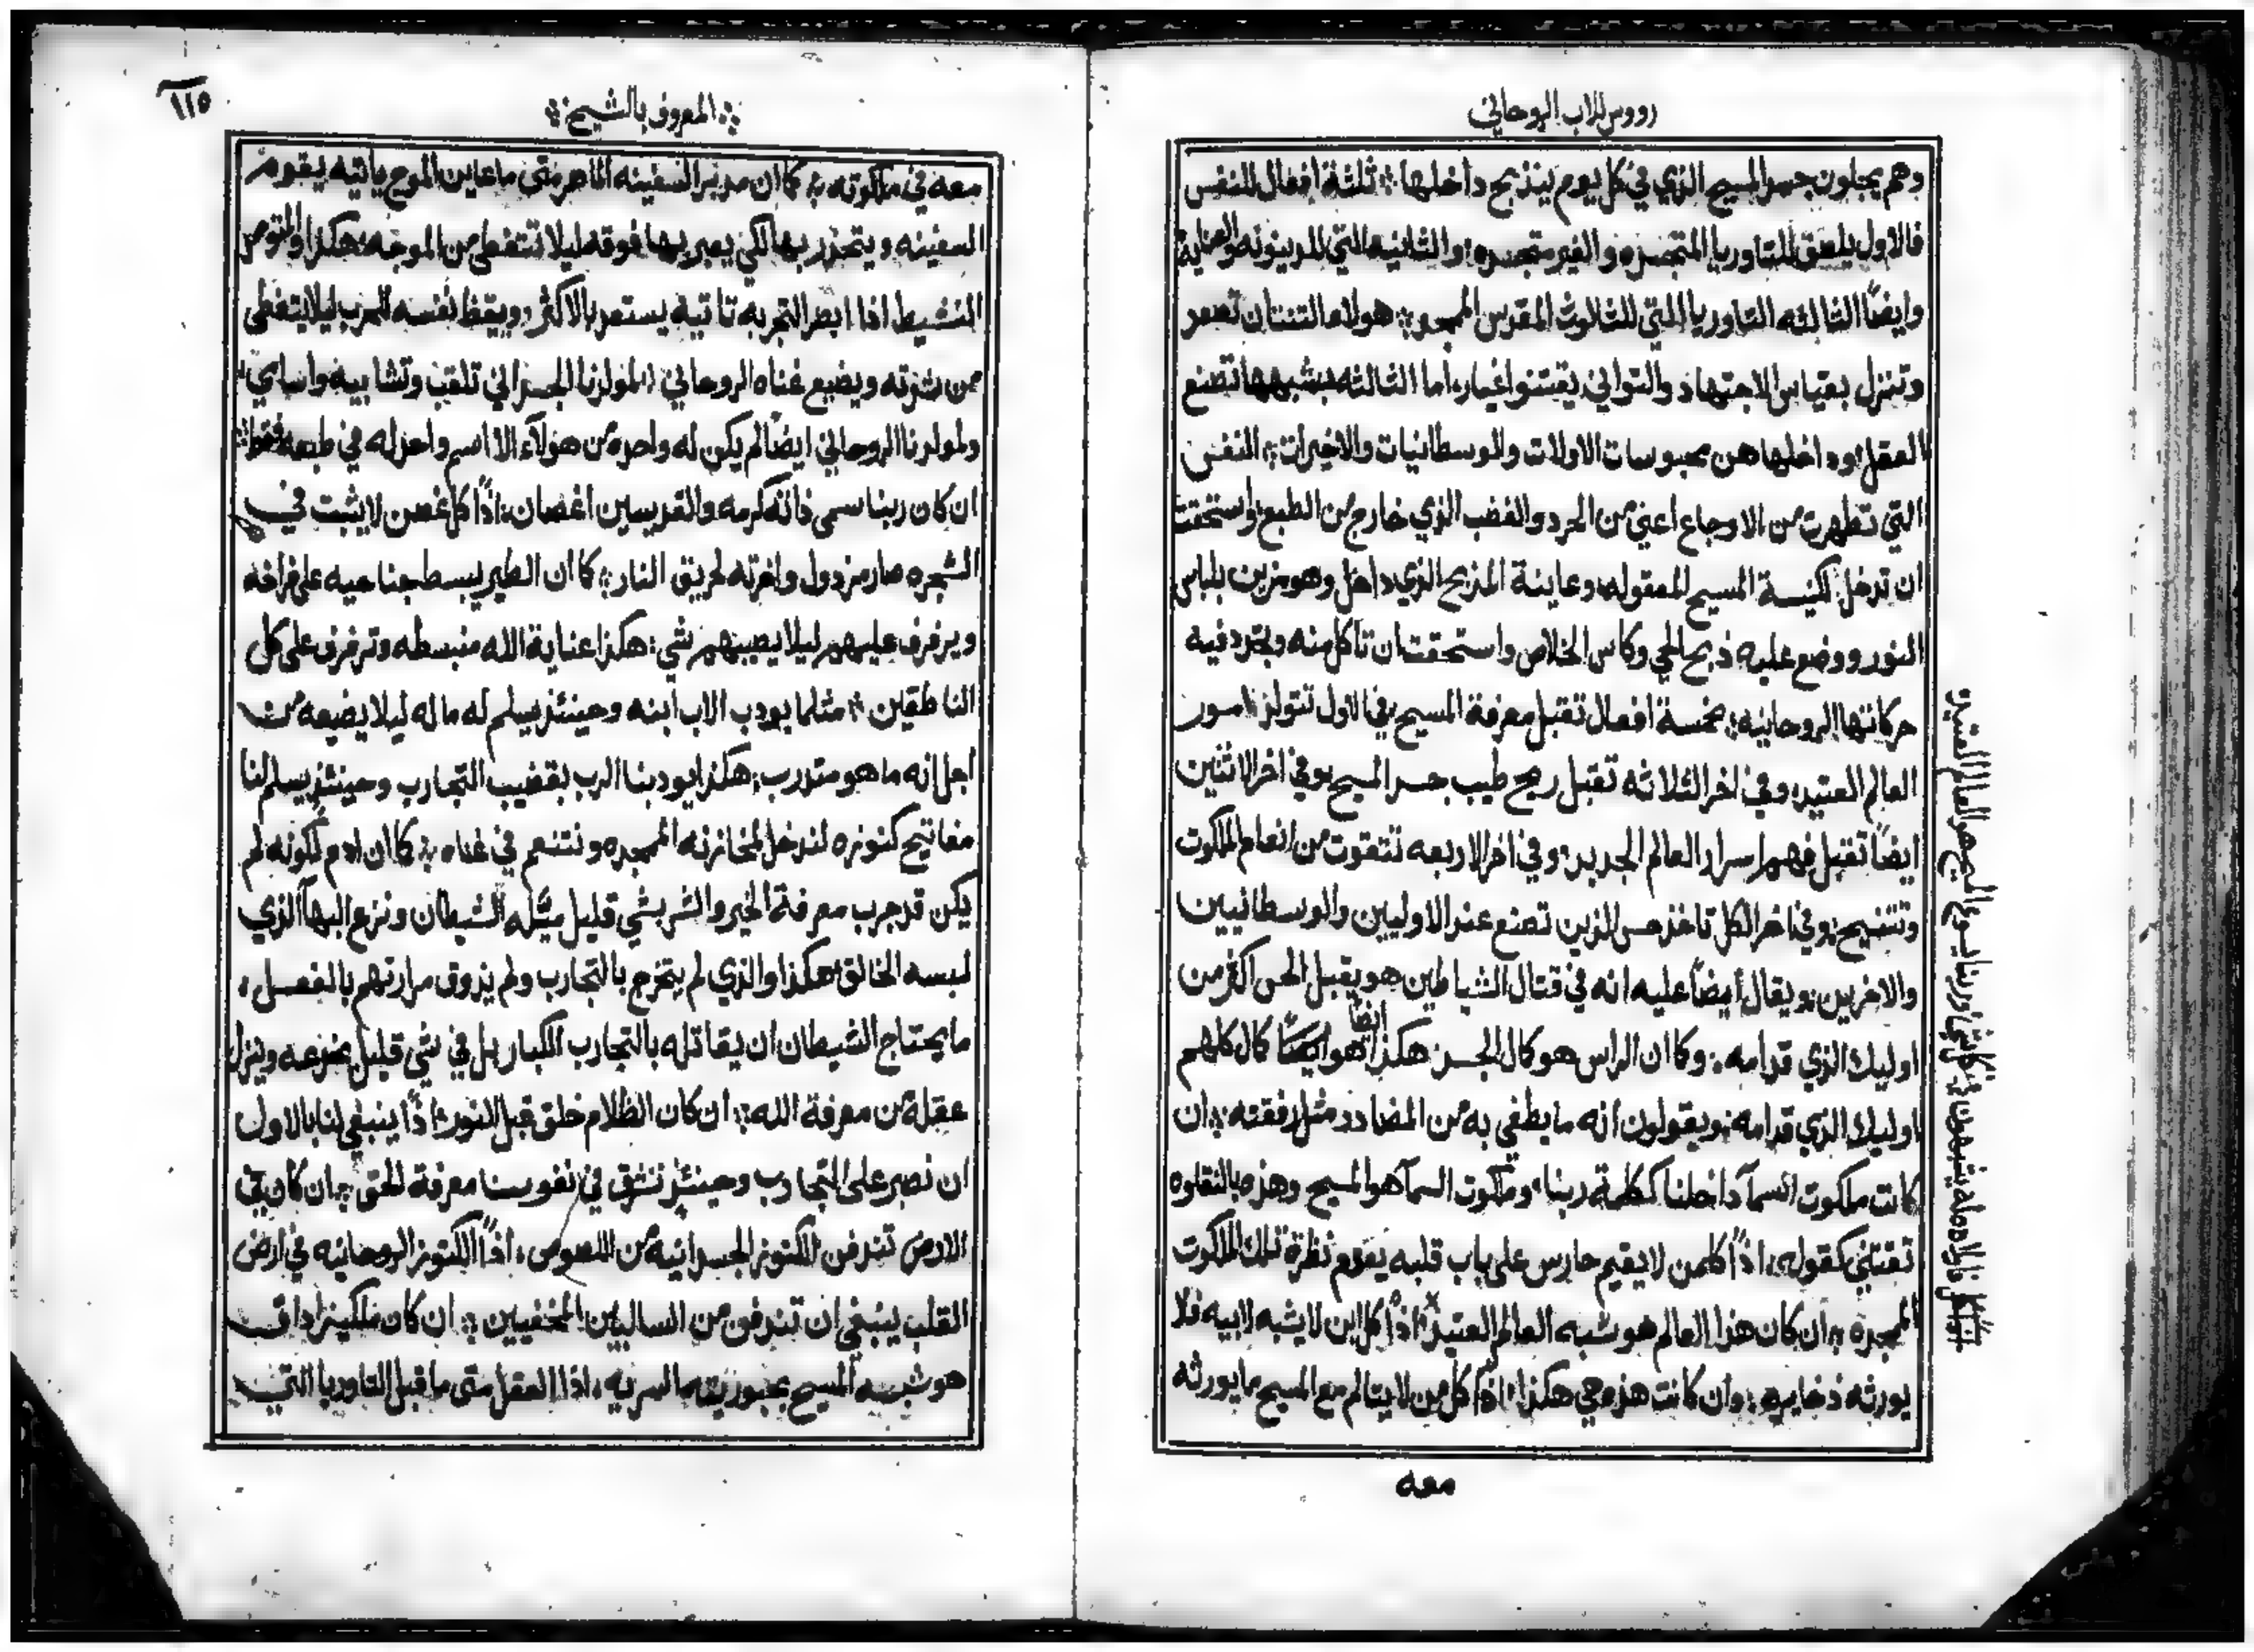 رووس للاب الروحاني
وهم يجلون جسد المسيح الذي في كل يوم يتذبح داخلها ⁘ ثلثة افعال للنفس
فالاول يلصق للتاوريا المتجسده والغير متجسده والثانيه التي للدينونه والعنايه
وايضًا الثالثه التاوريا التي للثالوث المقدس الممجد ⁘ هولاء التنتان تصعد
وتنزل بقياس الاجتهاد والتواني يقتنوا غيار اما الثالثه بشبهها تصنع
العقل وداخلها هن محبوسات الاولات والوسطانيات والاخيرات ⁘ النفس
التي تطهرت من الاوجاع اعني من الحرد والغضب الذي خارج من الطبع واستحقت
ان تدخل لكنيسة المسيح المعقوله وعاينة المذبح الذي داخل وهو مزين بلباس
النور ووضع عليه ذبح الحي وكاس الخلاص واستحقت ان تاكل منه وبترد فيه
حركاتها الروحانيه ⁘ بخمسة افعال تقبل معرفة المسيح في الاول تتولد لامور
العالم العتيد وفي اخر الثلاثه تقبل ريح طيب جسد المسيح وفي اخر الاثنين
ايضًا تقبل فهم اسرار العالم الجديد وفي اخر الاربعه تتقوت من انعام الملكوت
وتتنيح وفي اخر الكل تاخذ حس الذين تصنع عند الاوليين والوسطانيين
والاخريين ويقال ايضًا عليه انه في قتال الشياطين هو يقبل الحس اكثر من
اوليك الذي قدامه ⁘ وكما ان الراس هو كال الجسد هكذا ايضًا هو ايضًا كال كلهم
اوليك الذي قدامه ويقولون انه ما يطغي به من المضادد مثل رفقته ⁘ ان
كانت ملكوت السمآ داخلنا كلمة ربنا وملكوت السمآ هو المسيح وهذه بالنقاوه
تقتني كقوله اذًا كلمن لا يقيم حارس على باب قلبه يعدم نظرة تلك الملكوت
الممجده ⁘ ان كان هذا العالم هو شبه العالم العتيد اذًا كل ابن لا يشبه لابيه فلا
يورثه ذخايره ⁘ وان كانت هذه هي هكذا اذًا كل من لا يتالم مع المسيح ما يورثه
معه
١١٥
⁘ المعروف بالشيخ ⁘
معه في ملكوته ⁘ كما ان مدبر السفينه الماهر متى ما عاين الموج ياتيه يقوم
السفينه ويتحذر بها لكي يعبر بها فوقه ليلا تتغطى من الموجه هكذا والمتوحد
النشيط اذا ابصر التجربه تاتيه يستعد بالاكثر ويقظ نفسه للحرب ليلا يتغطى
من شدته ويضيع غناه الروحاني ⁘ لمولدنا الجسداني تلقب وتشابيه واسامي
ولمولدنا الروحاني ايضًا لم يكن له واحده من هولاء الا اسم واحد له في طبعه فقط ⁘
ان كان ربنا سمى ذاته كرمه والقديسين اغصان اذًا كل غصن لا يثبت في
الشجره صار مرذول واخرته لحريق النار ⁘ كما ان الطير يبسط جناحيه على فراخه
ويرفرف عليهم ليلا يصيبهم شي هكذا عناية الله منبسطه وترفرف على كل
الناطقين ⁘ مثلما يودب الاب ابنه وحينئذ يسلم له ماله ليلا يضيعه من
اجل انه ما هو متدرب هكذا يودبنا الرب بقضيب التجارب وحينئذ يسلم لنا
مفاتيح كنوزه لندخل لمخازنه الممجده ونتنعم في غناه ⁘ كما ان ادم لكونه لم
يكن قد جرب معرفة الخير والشر بشي قليل ميّله الشيطان ونزع البهآ الذي
لبسه الخالق هكذا والذي لم يتخرج بالتجارب ولم يذوق مرارتهم بالفعل
ما يحتاج الشيطان ان يقاتله بالتجارب الكبار بل في شي قليل يخدعه وينزل
عقله من معرفة الله ⁘ ان كان الظلام خلق قبل النور اذًا ينبغي لنا بالاول
ان نصبر على التجارب وحينئذ نشرق في نفوسنا معرفة الحق ⁘ ان كان في
الارض تندفن الكنوز الجسدانيه من اللصوص اذًا الكنوز الروحانيه في ارض
القلب ينبغي ان تندفن من السالبين المخفيين ⁘ ان كان ملكيزاداق
هو شبه المسيح بحبوريته السريه اذا العقل متى ما قبل التاوريا التي